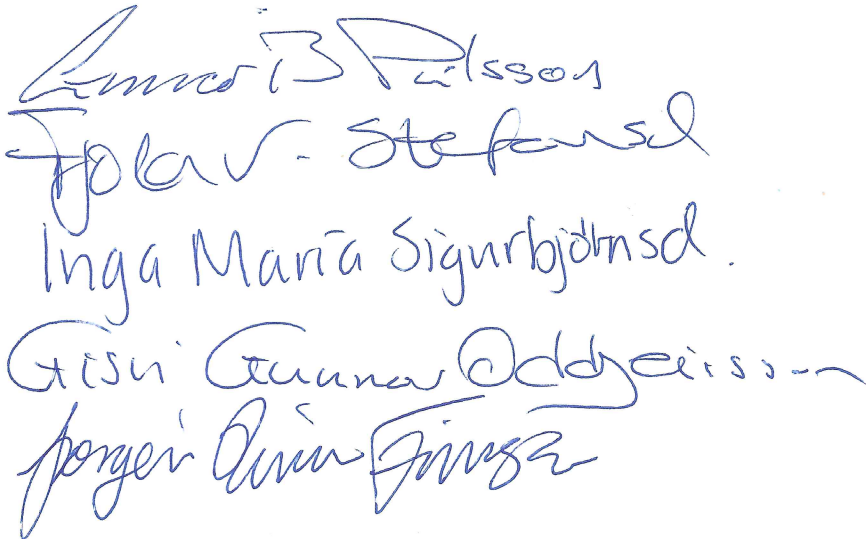 Gunnar B Pálsson
Fjóla V. Stefánsd
Inga María Sigurbjörnsd.
Gísli Gunnar Oddgeirsson
Þorgeir